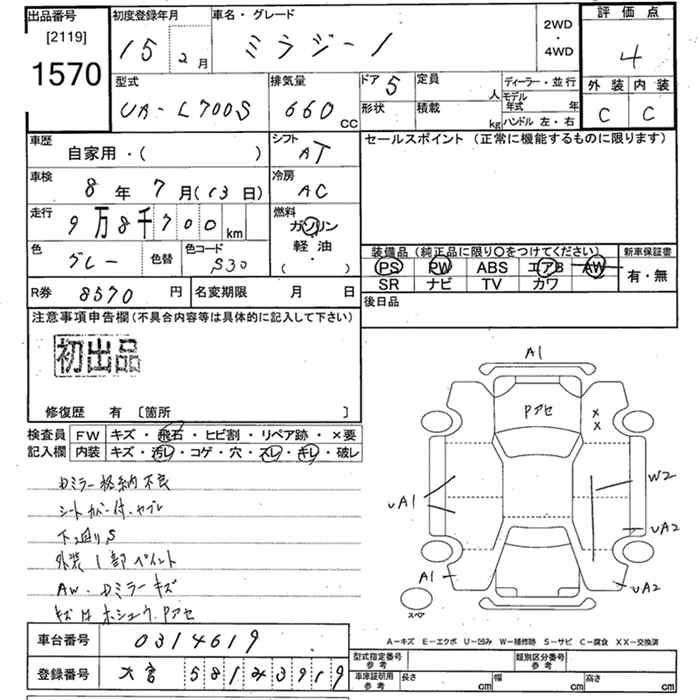 出品番号
[2119]
1570
初度登録年月
15 2月
車名・グレード
ミラジーノ
2WD
・
4WD
評価点
4
外装 内装
C C
型式
UA-L700S
排気量
660 CC
ドア 5
形状
定員 人
積載 kg
ディーラー・並行
モデル年式 年
ハンドル 左・右
車歴
自家用・( )
シフト
AT
セールスポイント (正常に機能するものに限ります)
車検
8年7月(13日)
冷房
AC
走行
9万8千700km
燃料
ガソリン
軽油
( ・ )
色
グレー
色替
色コード
S30
装備品 (純正品に限り〇をつけてください)
PS PW ABS エアB AW
SR ナビ TV カワ
新車保証書
有・無
R券
8570円
名変期限 月 日
後日品
注意事項申告欄 (不具合内容等は具体的に記入して下さい)
初出品
修復歴 有 〔箇所 〕
検査員 FW キズ・飛石・ヒビ割・リペア跡・×要
記入欄 内装 キズ・汚レ・コゲ・穴・スレ・キレ・破レ
Dミラー格納不良
シートカバー付、ヤブレ
下廻りS
外装1部ペイント
AW・Dミラーキズ
キズ ホシュウ、Pアセ
A1
Pアセ
×
×
UA1
W2
UA2
A1
UA2
スペア
A-キズ E-エクボ U-凹み W-補修跡 S-サビ C-腐食 XX-交換済
車台番号
0314619
登録番号
581 3919
型式指定番号
参考
類別区分番号
参考
車庫証明用
参考
長さ cm
幅 cm
高さ cm